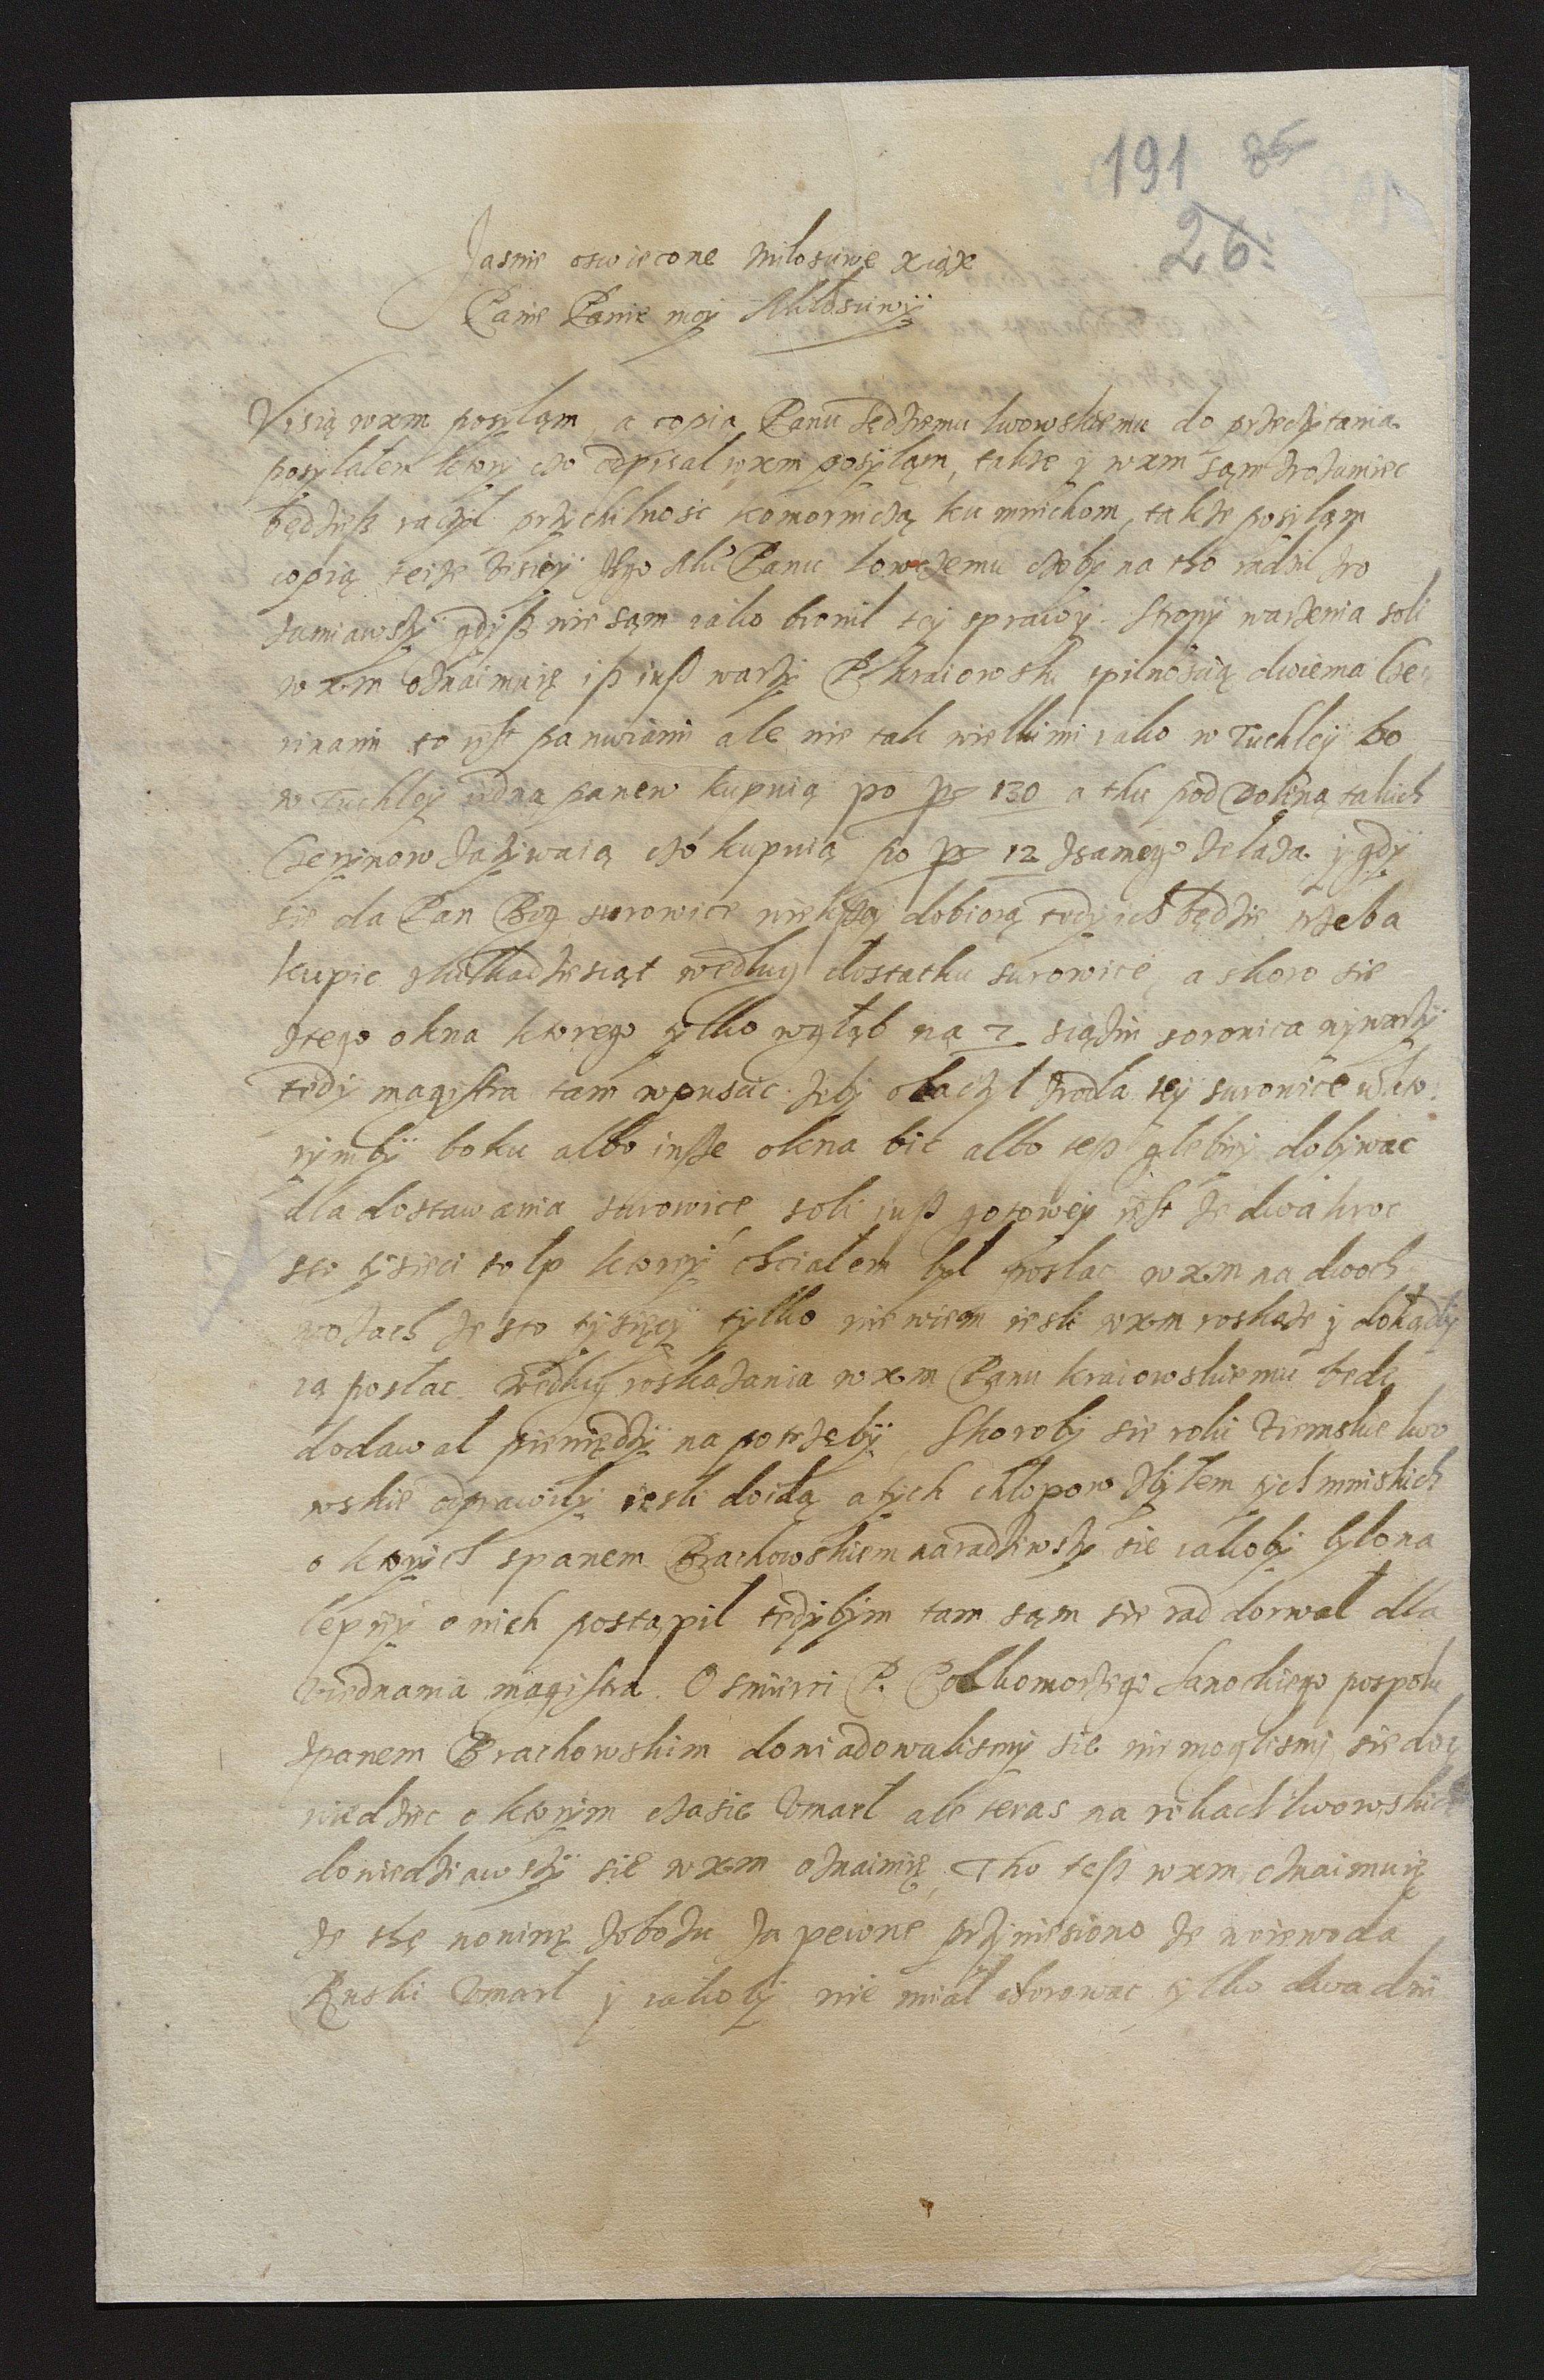 191 85
26.
Jasnie oswiecone Miłosciwe xiąże
Panie Panie moy Miłosciwy
Visią wxm posyląm, a copia Panu sędziemu lwowskiemu do przeczytania
posylalem ktory czo odpisal wxm posyląm, takze y wxm sąm zrozumiec
będziesz raczyl przychilnosc komorniczą ku mnichom, takze posyląm
copią teize visiey Jego Mci Panu Lowczemu zeby na tho radzil zro
zumiawszy gdysz nie sąm iako bronil tey sprawy. Strony warzenia soli
wxm oznaimuię isz iusz warzy P. Kraiowski spilnoscią dwiema Cze
rinami to iest panwiami ale nie tak wielkimi iako w Tuchley bo
w Tuchley iedną panew kupuią po 130 a thu pod Doliną takich
Czerynow zazywaią czo kupuią po 12 zsamego zelaza y gdy
sie da Pan Bog surowice wiekszey dobiorą tedy ich będzie trzeba
kupic zkilkadziesiąt według dostatku surowice, a skoro sie
ztego okna ktorego tylko wgłąb na 7 siążni sorowica wywarzy
tedy magistra tam wpuscic. zeby obaczyl zrodla tey surowice w kto
rymby boku albo insze okna bic albo tesz glebiey dobywac
dla dostawania surowice, soli iusz gotowey iest ze dwa kroc
sto tysieci tolp ktory chcialem był poslac wxm na dwoch
wozach ze sto tysięcy tylko nie wiem iesli wxm roskaze y dokądby
ią posłac. według roskazania wxm Panu kraiowskiemu będę
dodawal pieniędzy na potrzeby. Skoroby sie roki ziemskie lwo
wskie odprawiły iesli doidą a tych chlopow zbytem tych mniskich
o ktorych spanem Brachowskiem naradziwszy sie iakoby bylo na
lepiey o nich postąpil tedybym tam sąm sie rad dorwał dla
ziednania magistra. O smierci P. Potkomorzego Sanockiego pospolu
zpanem Brachowskim dowiadowalismy sie nie moglismy sie do
wiedziec o ktorym czasie Vmarł ale teras na rokach lwowskich
dowiedziawszy sie wxm oznaimię, Tho tesz wxm oznaimuię
ze thę nowinę zobozu za pewne przyniesiono ze woiewoda
Ruski Vmarł y iakoby nie miał chorowac tylko dwa dni